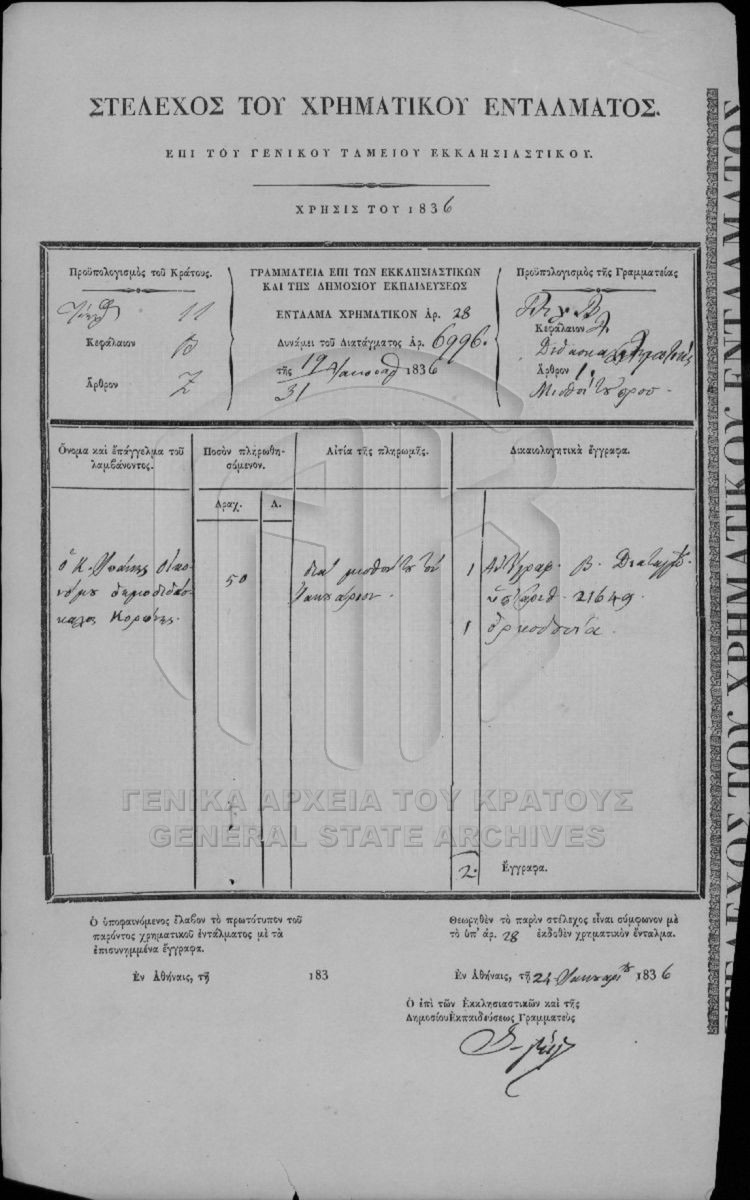 ΣΤΕΛΕΧΟΣ ΤΟΥ ΧΡΗΜΑΤΙΚΟΥ ΕΝΤΑΛΜΑΤΟΣ.
ΕΠΙ ΤΟΥ ΓΕΝΙΚΟΥ ΤΑΜΕΙΟΥ ΕΚΚΛΗΣΙΑΣΤΙΚΟΥ.
ΧΡΗΣΙΣ ΤΟΥ 1836
Προϋπολογισμὸς τοῦ Κράτους.
11
Κεφάλαιον Β
Ἄρθρον Ζ
ΓΡΑΜΜΑΤΕΙΑ ΕΠΙ ΤΩΝ ΕΚΚΛΗΣΙΑΣΤΙΚΩΝ
ΚΑΙ ΤΗΣ ΔΗΜΟΣΙΟΥ ΕΚΠΑΙΔΕΥΣΕΩΣ
ΕΝΤΑΛΜΑ ΧΡΗΜΑΤΙΚΟΝ ΑΡ. 28
Δυνάμει τοῦ Διατάγματος ΑΡ. 6996.
τῆς 19/31 1836
Προϋπολογισμὸς τῆς Γραμματείας
Β
Κεφάλαιον
Ἄρθρον 1.
Ὄνομα καὶ ἐπάγγελμα τοῦ
λαμβάνοντος.
Ποσὸν πληρωθη-
σόμενον.
Δραχ.
Λ.
Αἰτία τῆς πληρωμῆς.
Δικαιολογητικὰ ἔγγραφα.
ὁ Κ. οἰκο-
νόμου δημοδιδάσ-
καλος Κορώνης.
50
διὰ μισθόν του
Ἰανουάριον.
1 Ἀντίγραφ. Β. Διατάγμ.
ὑπ' ἀριθ. 21649
1
2. Ἔγγραφα.
ΓΕΝΙΚΑ ΑΡΧΕΙΑ ΤΟΥ ΚΡΑΤΟΥΣ
GENERAL STATE ARCHIVES
Ο ὑποφαινόμενος ἔλαβον τὸ πρωτότυπον τοῦ
παρόντος χρηματικοῦ ἐντάλματος μὲ τὰ
ἐπισυνημμένα ἔγγραφα.
Ἐν Ἀθήναις, τῇ 183
Θεωρηθὲν τὸ παρὸν στέλεχος εἶναι σύμφωνον μὲ
τὸ ὑπ' ἀρ. 28 ἐκδοθὲν χρηματικὸν ἔνταλμα.
Ἐν Ἀθήναις, τῇ 24 Ἰανουαρίου 1836
Ο ἐπὶ τῶν Ἐκκλησιαστικῶν καὶ τῆς
Δημοσίου Ἐκπαιδεύσεως Γραμματεὺς
ΣΤΕΛΕΧΟΣ ΤΟΥ ΧΡΗΜΑΤΙΚΟΥ ΕΝΤΑΛΜΑΤΟΣ